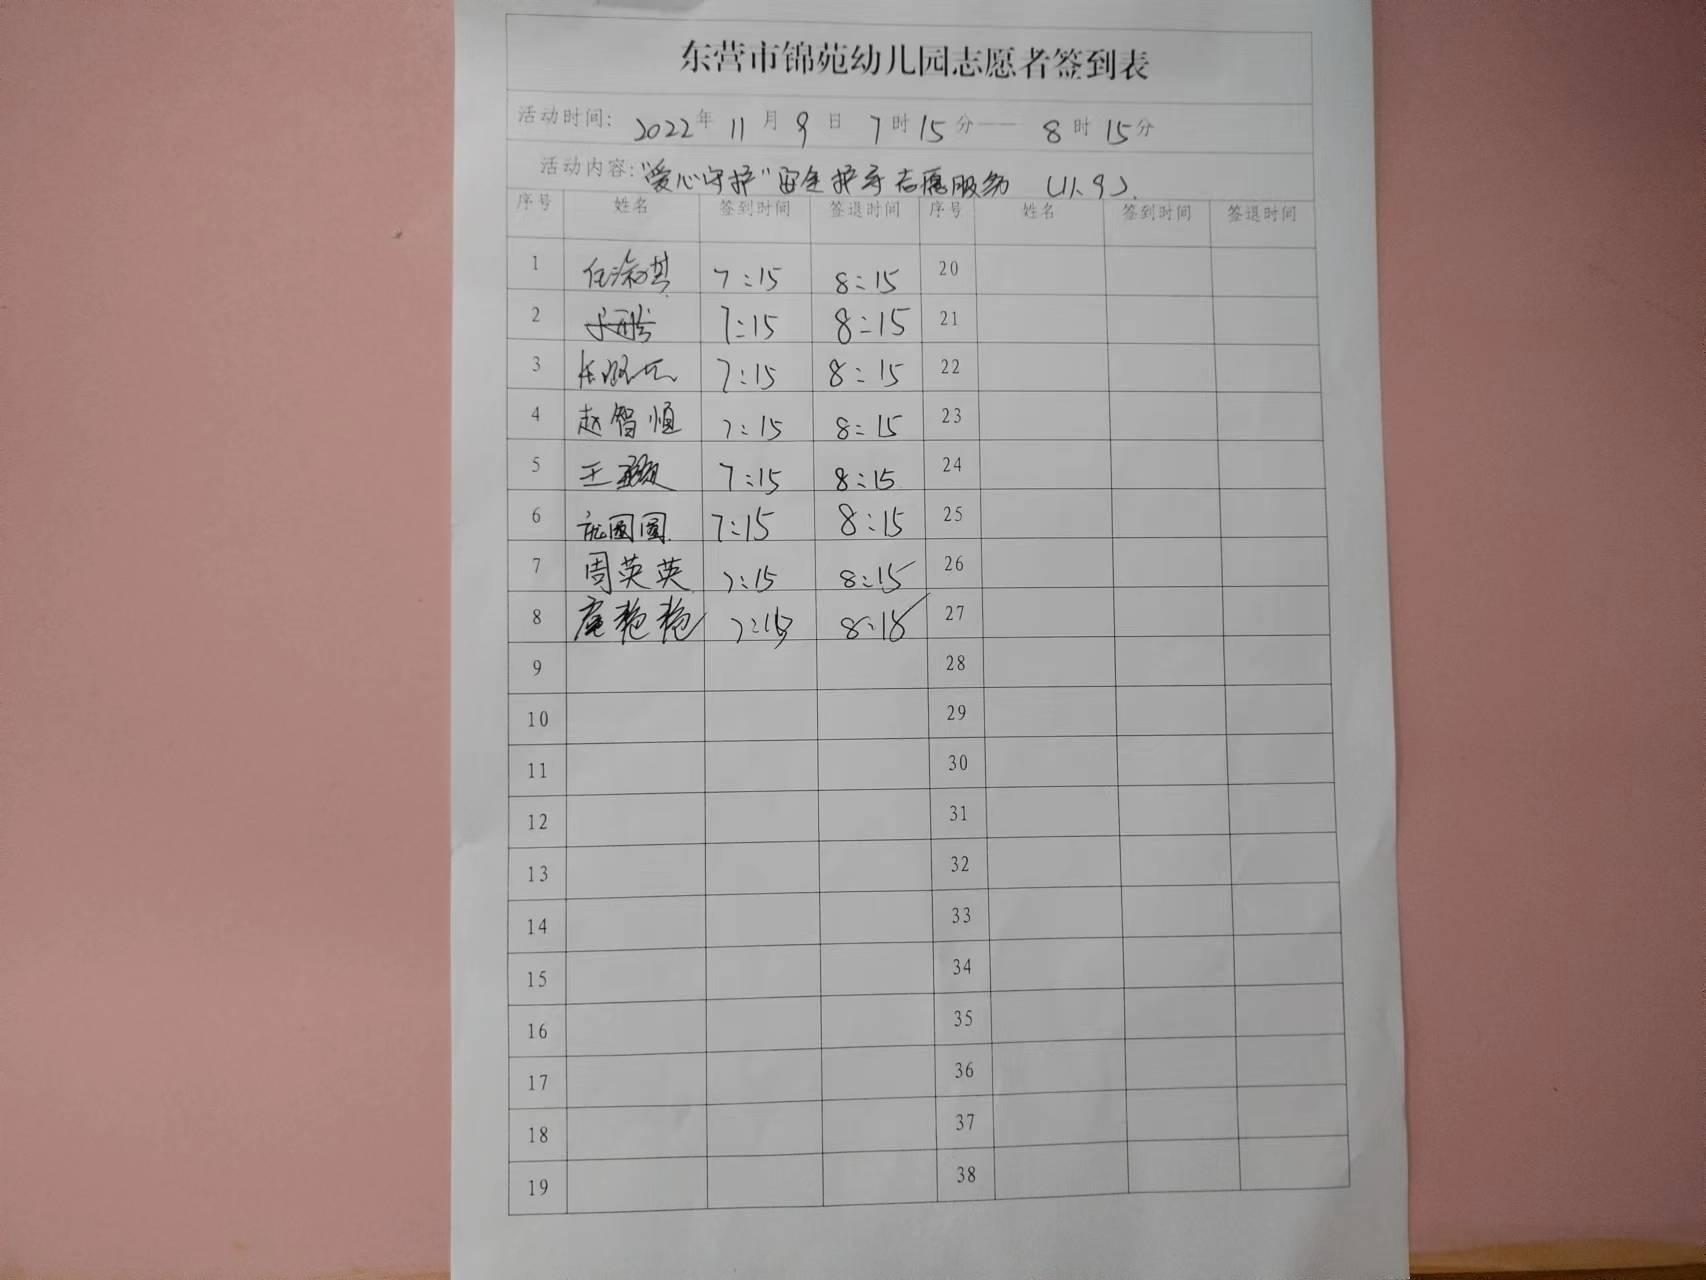 东营市锦苑幼儿园志愿者签到表
活动时间: 2022年 11月 9日 7时15分—— 8时15分
活动内容: "爱心守护"安全护学志愿服务 (11.9).
序号 姓名 签到时间 签退时间 序号 姓名 签到时间 签退时间
1 7:15 8:15 20
2 7:15 8:15 21
3 7:15 8:15 22
4 赵智恒 7:15 8:15 23
5 王 7:15 8:15 24
6 7:15 8:15 25
7 周英英 7:15 8:15 26
8 7:15 8:15 27
9 28
10 29
11 30
12 31
13 32
14 33
15 34
16 35
17 36
18 37
19 38